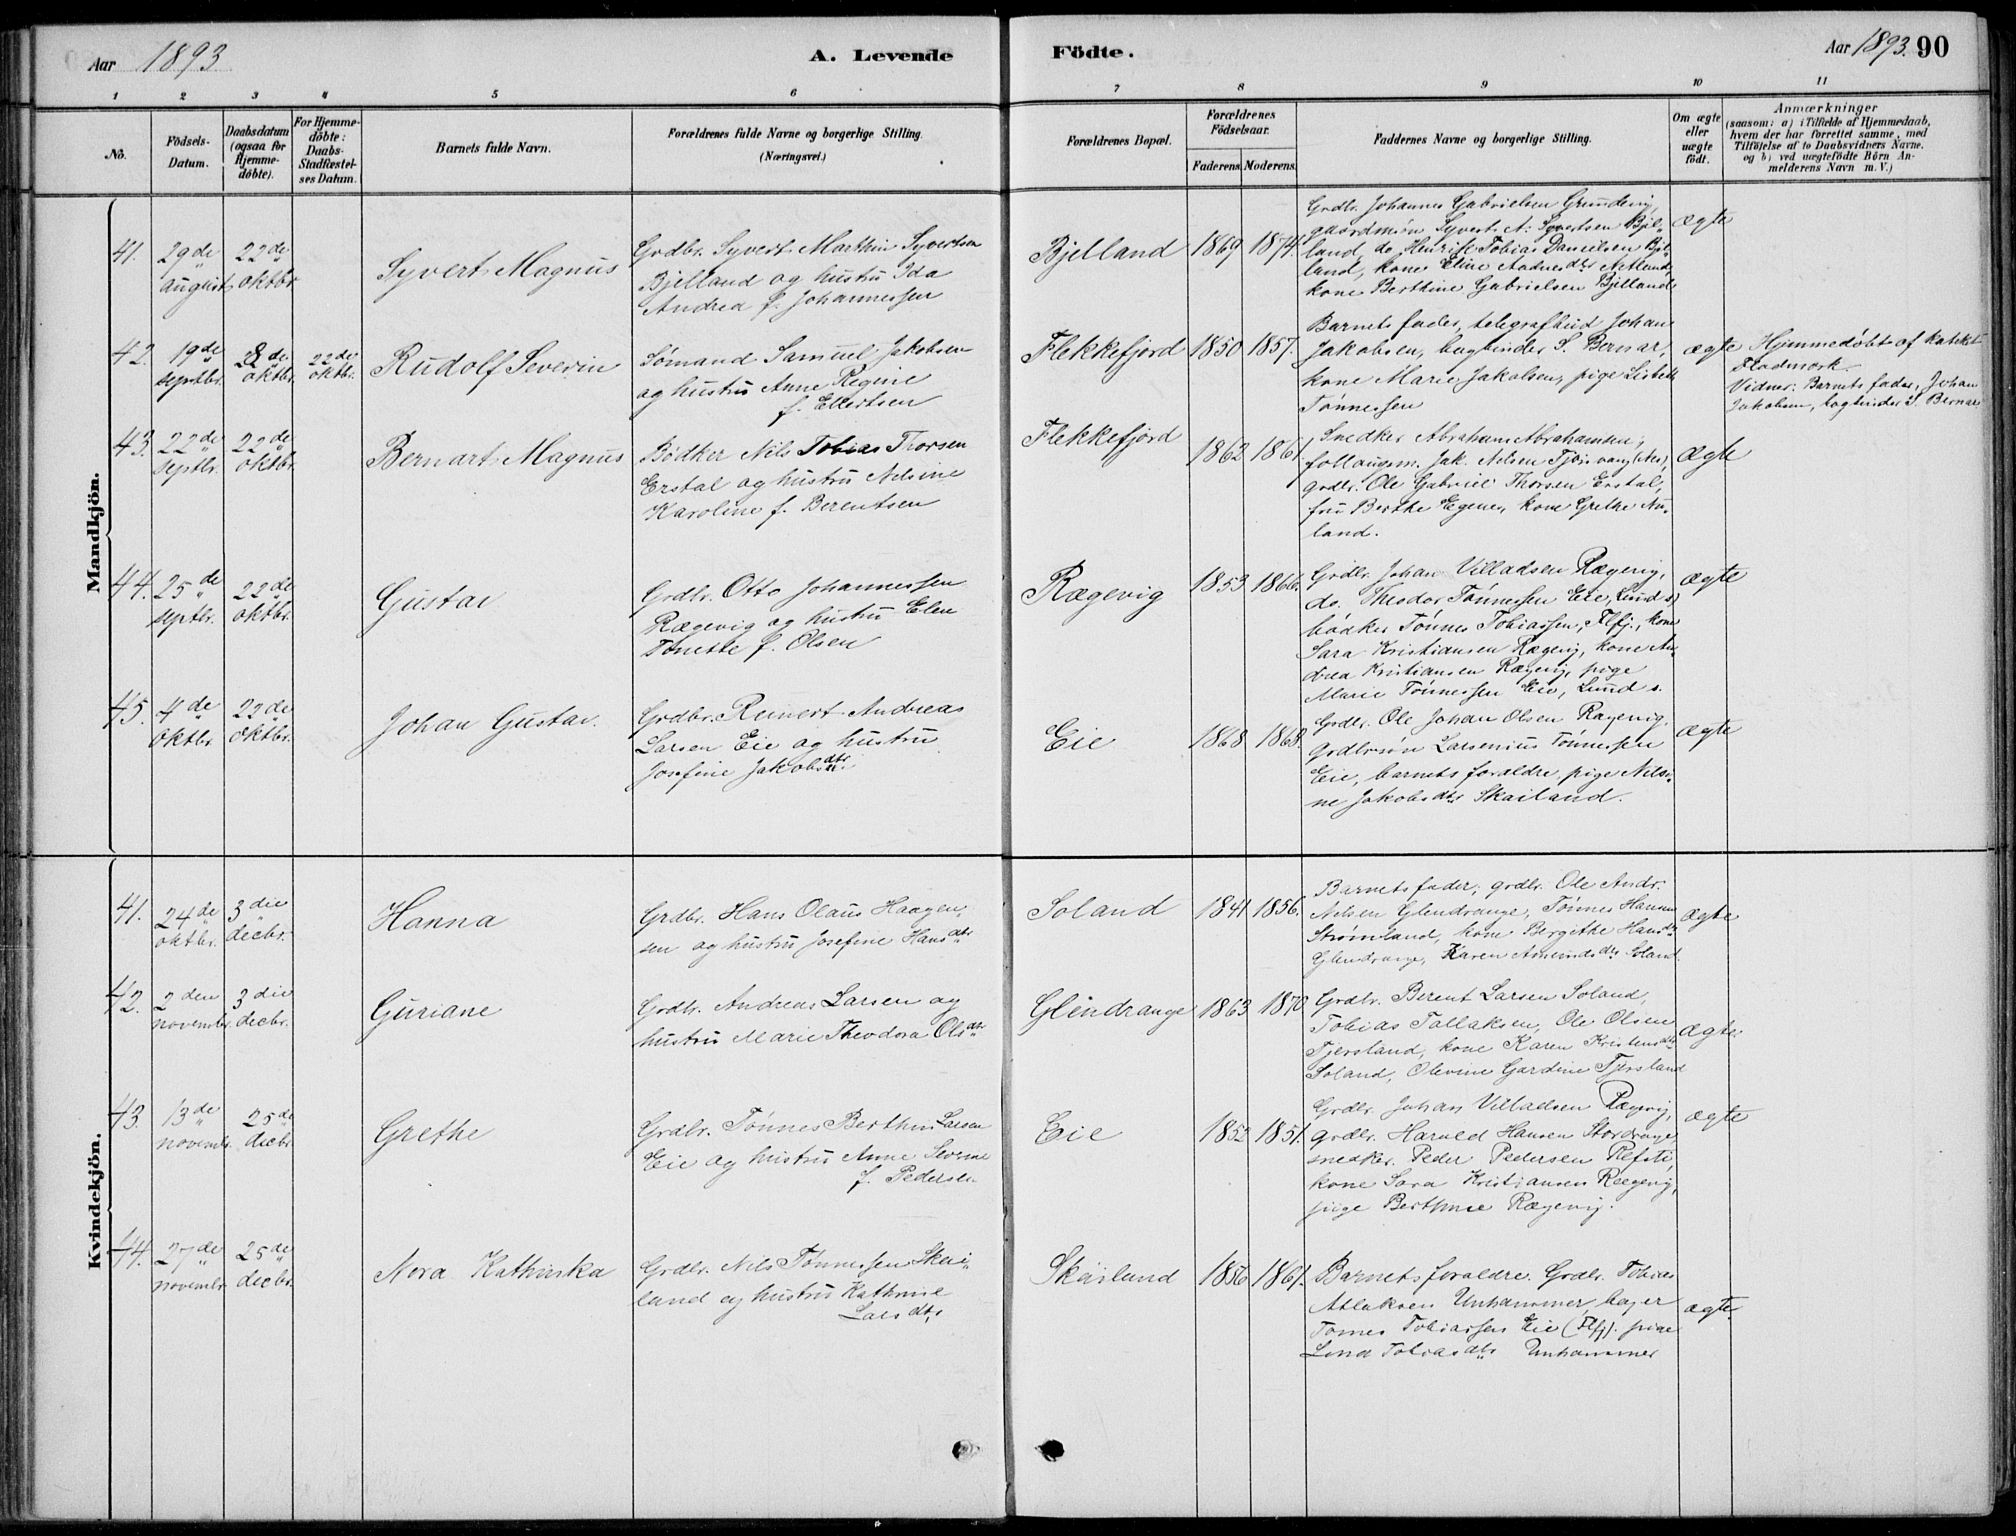 Aar 1893
A. Levende
Födte.
Aar 1893. 90
1 2 3 4 5 6 7 8 9 10 11
No.
Födsels-
Datum.
Daabsdatum
(ogsaa for
Hjemme-
döbte).
For Hjemme-
döbte:
Daabs-
Stadfæstel-
ses Datum.
Barnets fulde Navn.
Forældrenes fulde Navne og borgerlige Stilling.
(Næringsvei.)
Forældrenes Bopæl.
Forældrenes
Födselsaar.
Faderens. Moderens.
Faddernes Navne og borgerlige Stilling.
Om ægte
eller
uægte
födt.
Anmærkninger
(saasom: a) i Tilfælde af Hjemmedaab,
hvem der har forrettet samme, med
Tilföielse af to Daabsvidners Navne.
og b) ved uægtefödte Börn An-
melderens Navn m. V.)
Mandkjön.
41.
29de
august
22de
oktbr
Syvert Magnus
Grdbr. Syvert Marthin Syvertsen
Bjelland og hustru Ida
Andrea f. Johannessen
Bjelland
1869
1874.
Grdbr. Johannes Gabrielsen Grundevig,
gaardmøn Syvert N. Syvertsen Bjel-
land, do. Henrik Tobias Danielsen Bjel-
land, kone Eline Aadnesdtr Netland,
kone Berthine Gabrielsen Bjelland
ægte
42.
19de
septbr.
8de
oktbr.
22de
oktbr.
Rudolf Severin
Sømand Samuel Jakobsen
og hustru Anne Regine
f. Ellertsen
Flekkefjord
1850
1857.
Barnets fader, telegrafbud Johan
Jakobsen, bogbinder S. Bernar,
kone Marie Jakobsen, pige Lisbeth
Tønnessen
ægte
Hjemmedøbt af katekt
Flodmork.
Vidner: Barnets fader, Johan
Jakobsen, bogbinder S. Bernar
43.
22de
septbr.
22de
oktbr.
Bernart Magnus
Bødker Nils Tobias Thorsen
Erstal og hustru Nilsine
Karoline f. Berentsen
Flekkefjord
1862
1861
Snedker Abraham Abrahamsen,
follaugsm. Jak. Nilsen Tjørsvaag (Nes),
grdbr. Ole Gabriel Thorsen Erstal,
fru Berthe Egenes, kone Grethe Au-
land.
ægte
44.
25de
septbr.
22de
oktbr.
Gustav
Grdbr. Otto Johannessen
Rægevig og hustru Elen
Tonette f. Olsen
Rægevig
1853
1866.
Grdbr. Johan Villadsen Rægevig,
do. Theodor Tønnessen Eie, Lund s.
bødker Tønnes Tobiassen, Flfj., kone
Sara Kristiansen Rægevig, kone An-
drea Kristiansen Rægevig, pige
Marie Tønnessen Eie, Lund s.
ægte
45.
4de
oktbr.
22de
oktbr.
Johan Gustav.
Grdbr. Reinert Andreas
Larsen Eie og hustru
Josefine Jakobsdtr.
Eie
1868
1868.
Grdbr. Ole Johan Olsen Rægevig.
Grdbrsøn Larsenius Tønnessen
Eie, barnets forældre, pige Nilsi-
ne Jakobsdtr Skailand.
ægte
Kvindekjön.
41.
24de
oktbr.
3die
decbr.
Hanna
Grdbr. Hans Olaus Haagen-
sen og hustru Josefine Hansdtr
Soland
1841
1856.
Barnets fader, grdbr. Ole Andr.
Nilsen Glendrange, Tønnes Hansen
Strømland, kone Bergithe Hansdtr
Glendrange, Karen Amundsdtr Soland
ægte
42.
2den
novembr.
3die
decbr.
Guriane
Grdbr. Andreas Larsen og
hustru Marie Theodora Olsdtr
Glendrange
1863
1870
Grdbr. Berent Larsen Soland,
Tobias Tallaksen, Ole Olsen
Tjersland, kone Karen Kristensdtr
Soland, Olevine Gardine Tjersland
ægte.
43.
13de
novembr.
25de
decbr
Grethe
Grdbr. Tønnes Berthin Larsen
Eie og hustru Anne Severine
f. Pedersen
Eie
1852
1851.
Grdbr. Johan Villadsen Rægevig,
grdbr. Harald Hansen Stordrange
snedker. Peder Pedersen Refsti,
kone Sara Kristiansen Rægevig,
pige Berthine Rægevig.
ægte
44.
27de
novembr
25de
decbr.
Nora Kathinka
Grdbr. Nils Tønnessen Skai-
land og hustru Kathrine
Larsdtr
Skailand
1856
1861.
Barnets forældre. Grdbr. Tobias
Atlaksen Unhammer, bager
Tønnes Tobiassen Eie (Flfj). pige
Lina Tobiasdtr Unhammer
ægte.